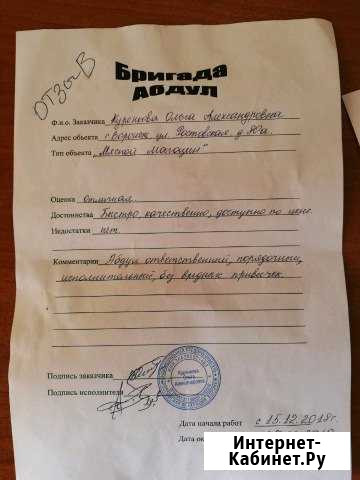 ОТЗЫВ
Бригада
Абдул
Ф.и.о. Заказчика Куренкова Ольга Александровна
Адрес объекта г. Воронеж ул. Ростовская д.
Тип объекта „Мясной Магазин"
Оценка Отличная.
Достоинства Быстро, качественно, доступно по цене.
Недостатки нет
Комментарии Абдул ответственный, порядочный,
исполнительный, без вредных привычек.
Подпись заказчика
Подпись исполнителя
Дата начала работ с 15.12.2018г.
Дата ок
Интернет-
Кабинет.Ру